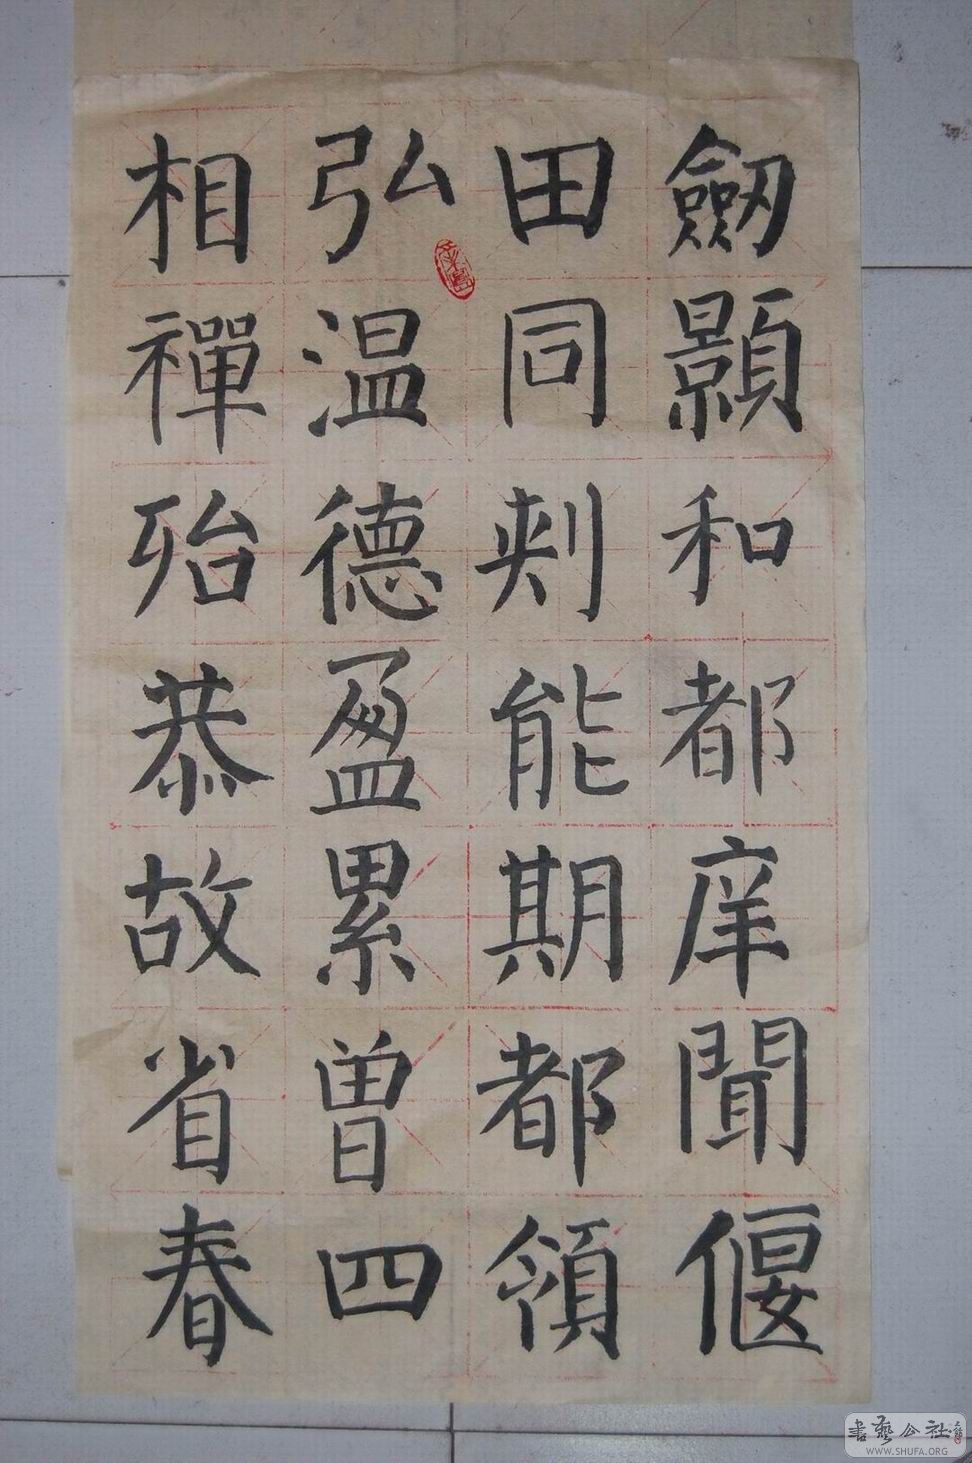 劒顥和都庠聞偃
田同刾能期都領
弘温德盈累曽四
相禪殆恭故省春
書藝公社
WWW.SHUFA.ORG